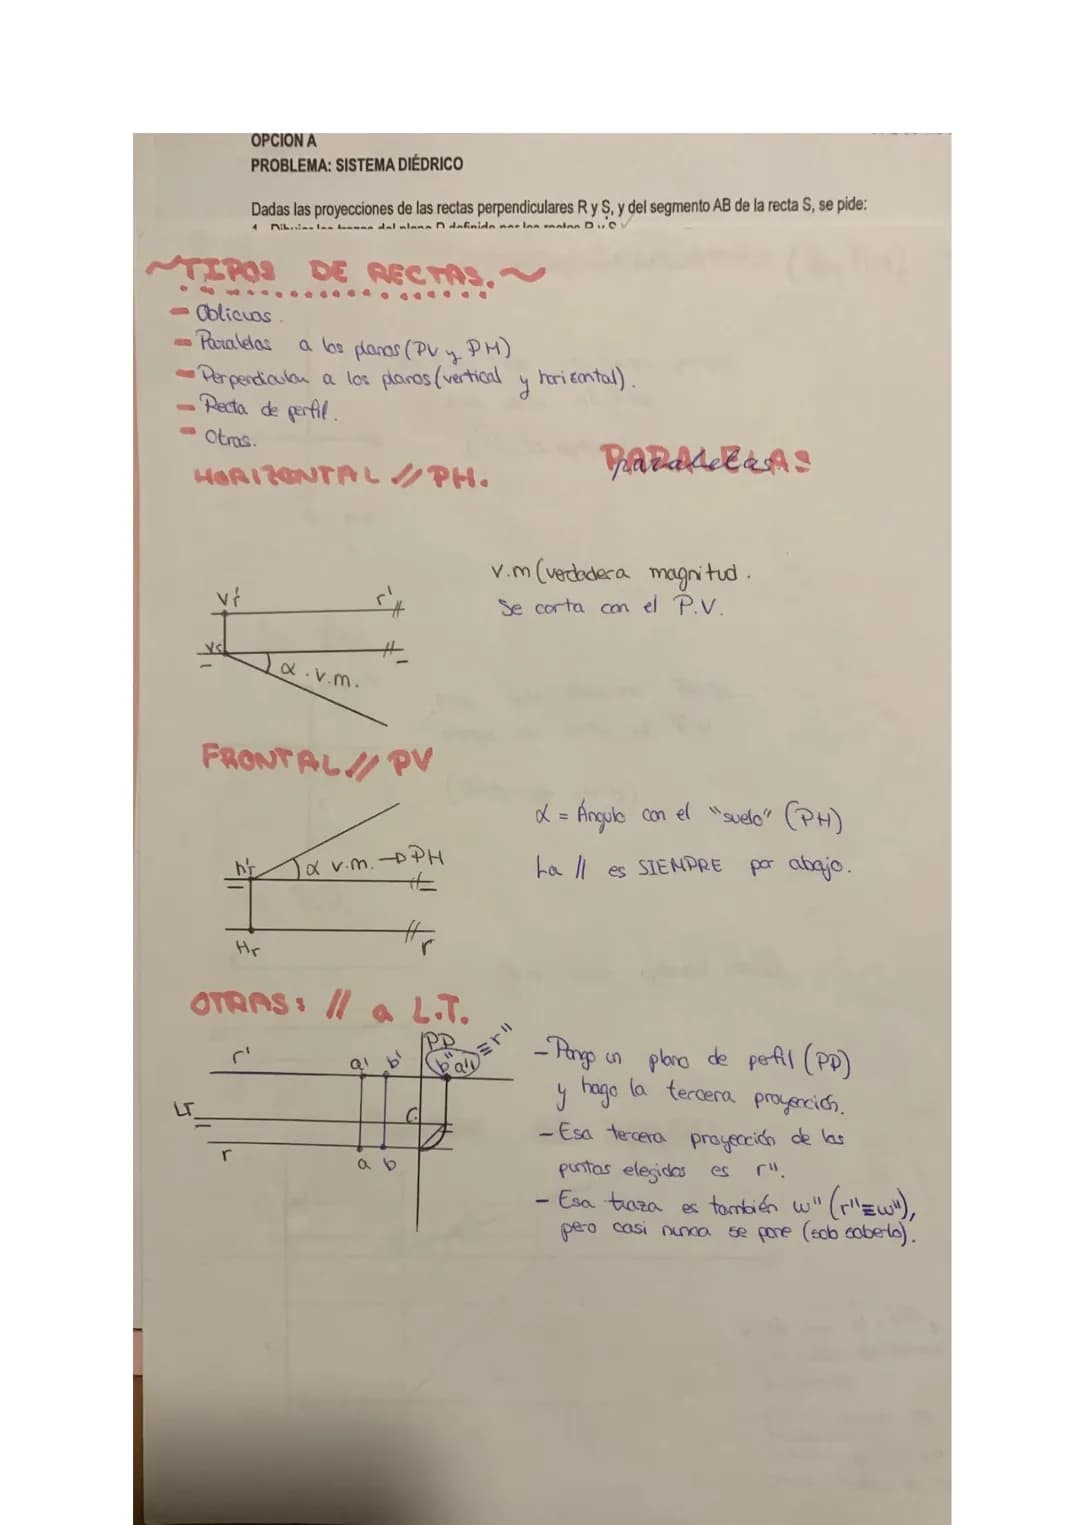 OPCION A
PROBLEMA: SISTEMA DIÉDRICO
Dadas las proyecciones de las rectas perpendiculares R y S, y del segmento AB de la recta S, se pide:
~TIPOS DE RECTAS.~
- Oblicuas.
- Paralelas a los planos (PV y PH)
- Perpendicular a los planos (vertical y horizontal).
- Recta de perfil.
- Otras.
PARALELAS
paralelas
HORIZONTAL // PH.
v.m (verdadera magnitud.
Se corta con el P.V.
r'
α . v.m.
FRONTAL // PV
α = Ángulo con el "suelo" (PH)
La // es SIEMPRE por abajo.
α v.m. → PH
Hr
r
OTRAS: // a L.T.
PP
r'
a' b'
b" a" ≡ r"
LT
r
a b
- Pongo un plano de perfil (PP)
y hago la tercera proyección.
- Esa tercera proyección de los
puntos elegidos es r".
- Esa traza es también w" (r"≡w"),
pero casi nunca se pone (solo saberlo).